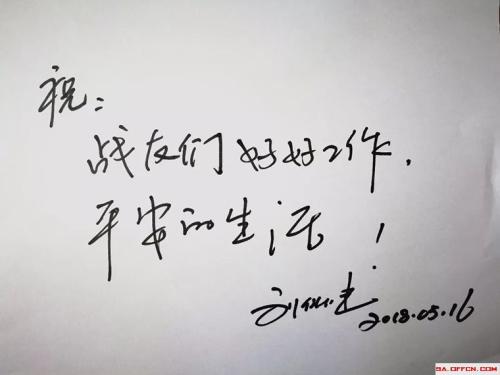 祝：
战友们好好工作，
平安的生活！
2018.05.16
SA.OFFCN.COM